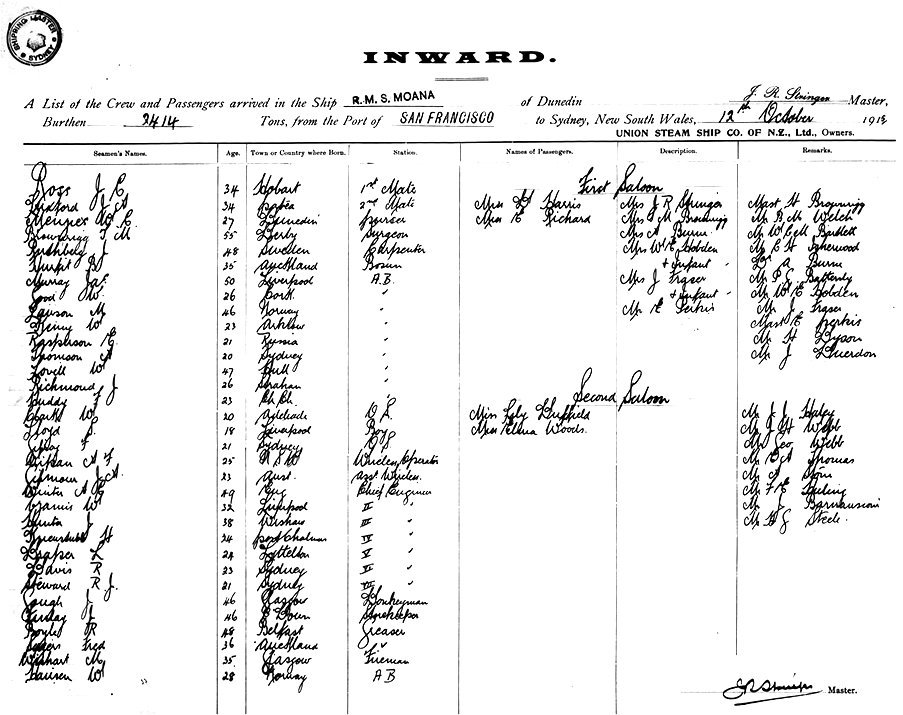 SHIPPING MASTER SYDNEY
INWARD.
A List of the Crew and Passengers arrived in the Ship R.M.S. MOANA of Dunedin J. R. Stringer Master,
Burthen 2414 Tons, from the Port of SAN FRANCISCO to Sydney, New South Wales, 12th October 191
UNION STEAM SHIP CO. OF N.Z., Ltd., Owners.
Seamen's Names. Age. Town or Country where Born. Station. Names of Passengers. Description. Remarks.
First Saloon
Ross J E 34 Hobart 1st Mate
J A 34 2nd Mate Miss Harris Mrs J R Stringer Mast H Brownrigg
27 Dunedin Purser Miss E Richard Mrs F M Brownrigg Mr B M Welch
Brownrigg F M 55 Derby Surgeon Mrs A Burne Mr W C M Bartlett
J 48 Sweden Carpenter Mrs W E Hobden Mr C H Isherwood
35 Auckland Bosun + Infant Dr A Burne
Murray Jas 50 Liverpool A.B. Mrs J Fraser Mr P J
Good W. 26 Cork " + Infant Mr W E Hobden
Lawson M 46 Norway " Mr E Perkis Mr J Fraser
Henry W 23 Arklow " Mast E Perkis
21 Russia " Mr H Dyson
Thomson A 20 Sydney " Mr J
Lovell W 47 Hull "
Richmond J 26 Strahan "
Second Saloon
Buddy F 23 Ch. Ch. "
Clark W 20 Adelaide O.S. Miss Lily Duffield Mr J J Haley
Lloyd 18 Liverpool Boy Miss Elma Woods. Mr J H Webb
F 21 Sydney Mr Geo Webb
A F 25 N S W Wireless Operator Mr Thomas
Gilmour J A 23 Aust. Asst Wireless. Mr A
Winter A G 49 Eng Chief Engineer Mr F E
W 32 Liverpool II " Mr J
Hunter J 38 Wishaw III " Mr H J Steele.
H 24 Port Chalmers IV "
Draper L 24 Lyttelton V "
Davis R 23 Sydney "
Steward R J. 21 Sydney "
Gough J 46 Glasgow Donkeyman
Finlay J 46 C Down Storekeeper
Boyle R 48 Belfast Greaser
Fred 36 Auckland "
Wishart M 35 Glasgow Fireman
Hansen W 28 Norway A B
Master.